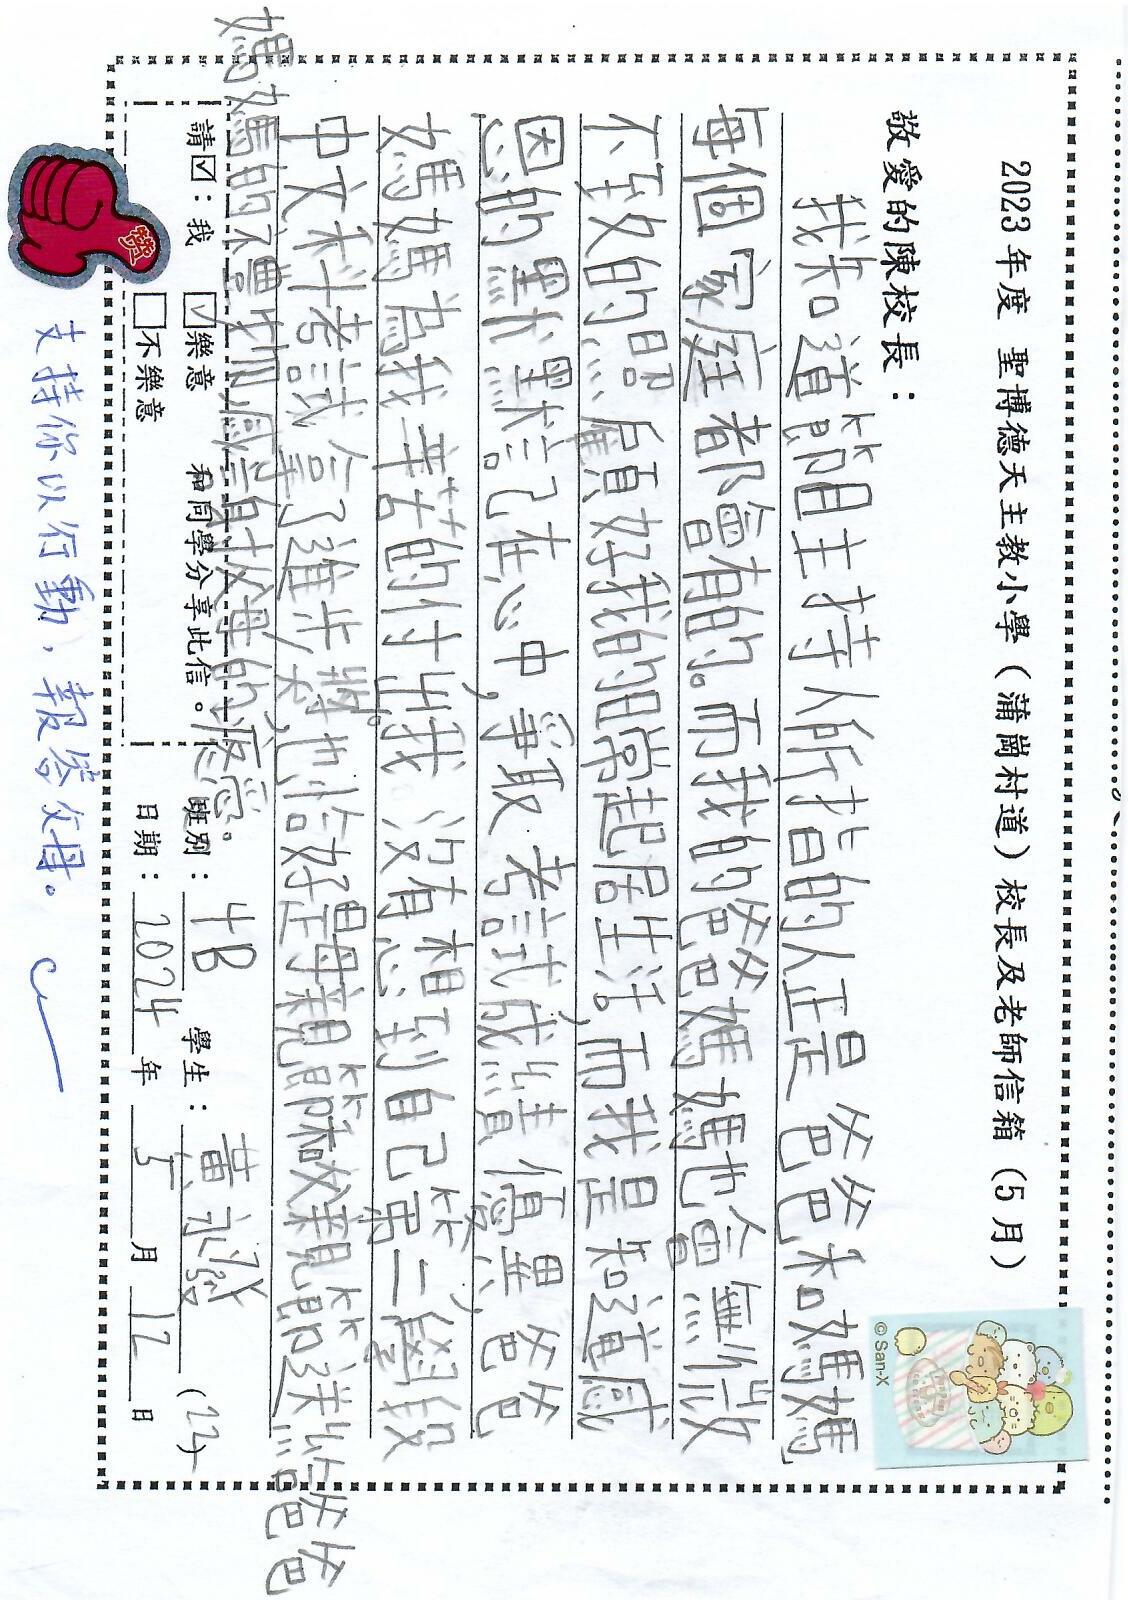 2023年度 聖博德天主教小學（蒲崗村道）校長及老師信箱（5月）
敬愛的陳校長：
我知道節目主持人所指的人正是爸爸和媽媽」
每個「家庭都會有的。而我的爸爸媽媽也會無微
不致的照顧好我的日常起居生活,而我是知道感
恩的默默記在心中,爭取考試成績優異,爸爸
媽媽為我辛苦的付出。我沒有想到自己第二學段
中文科考試拿了進步獎,也恰好是母親節
媽媽的禮物,感謝父母的疼愛。
請☑：我 ☑樂意 和同學分享此信。
□不樂意
班別：4B 學生：黃永發 (22)
日期：2024年5月12日
讚
支持你以行動，報答父母。
© San-X